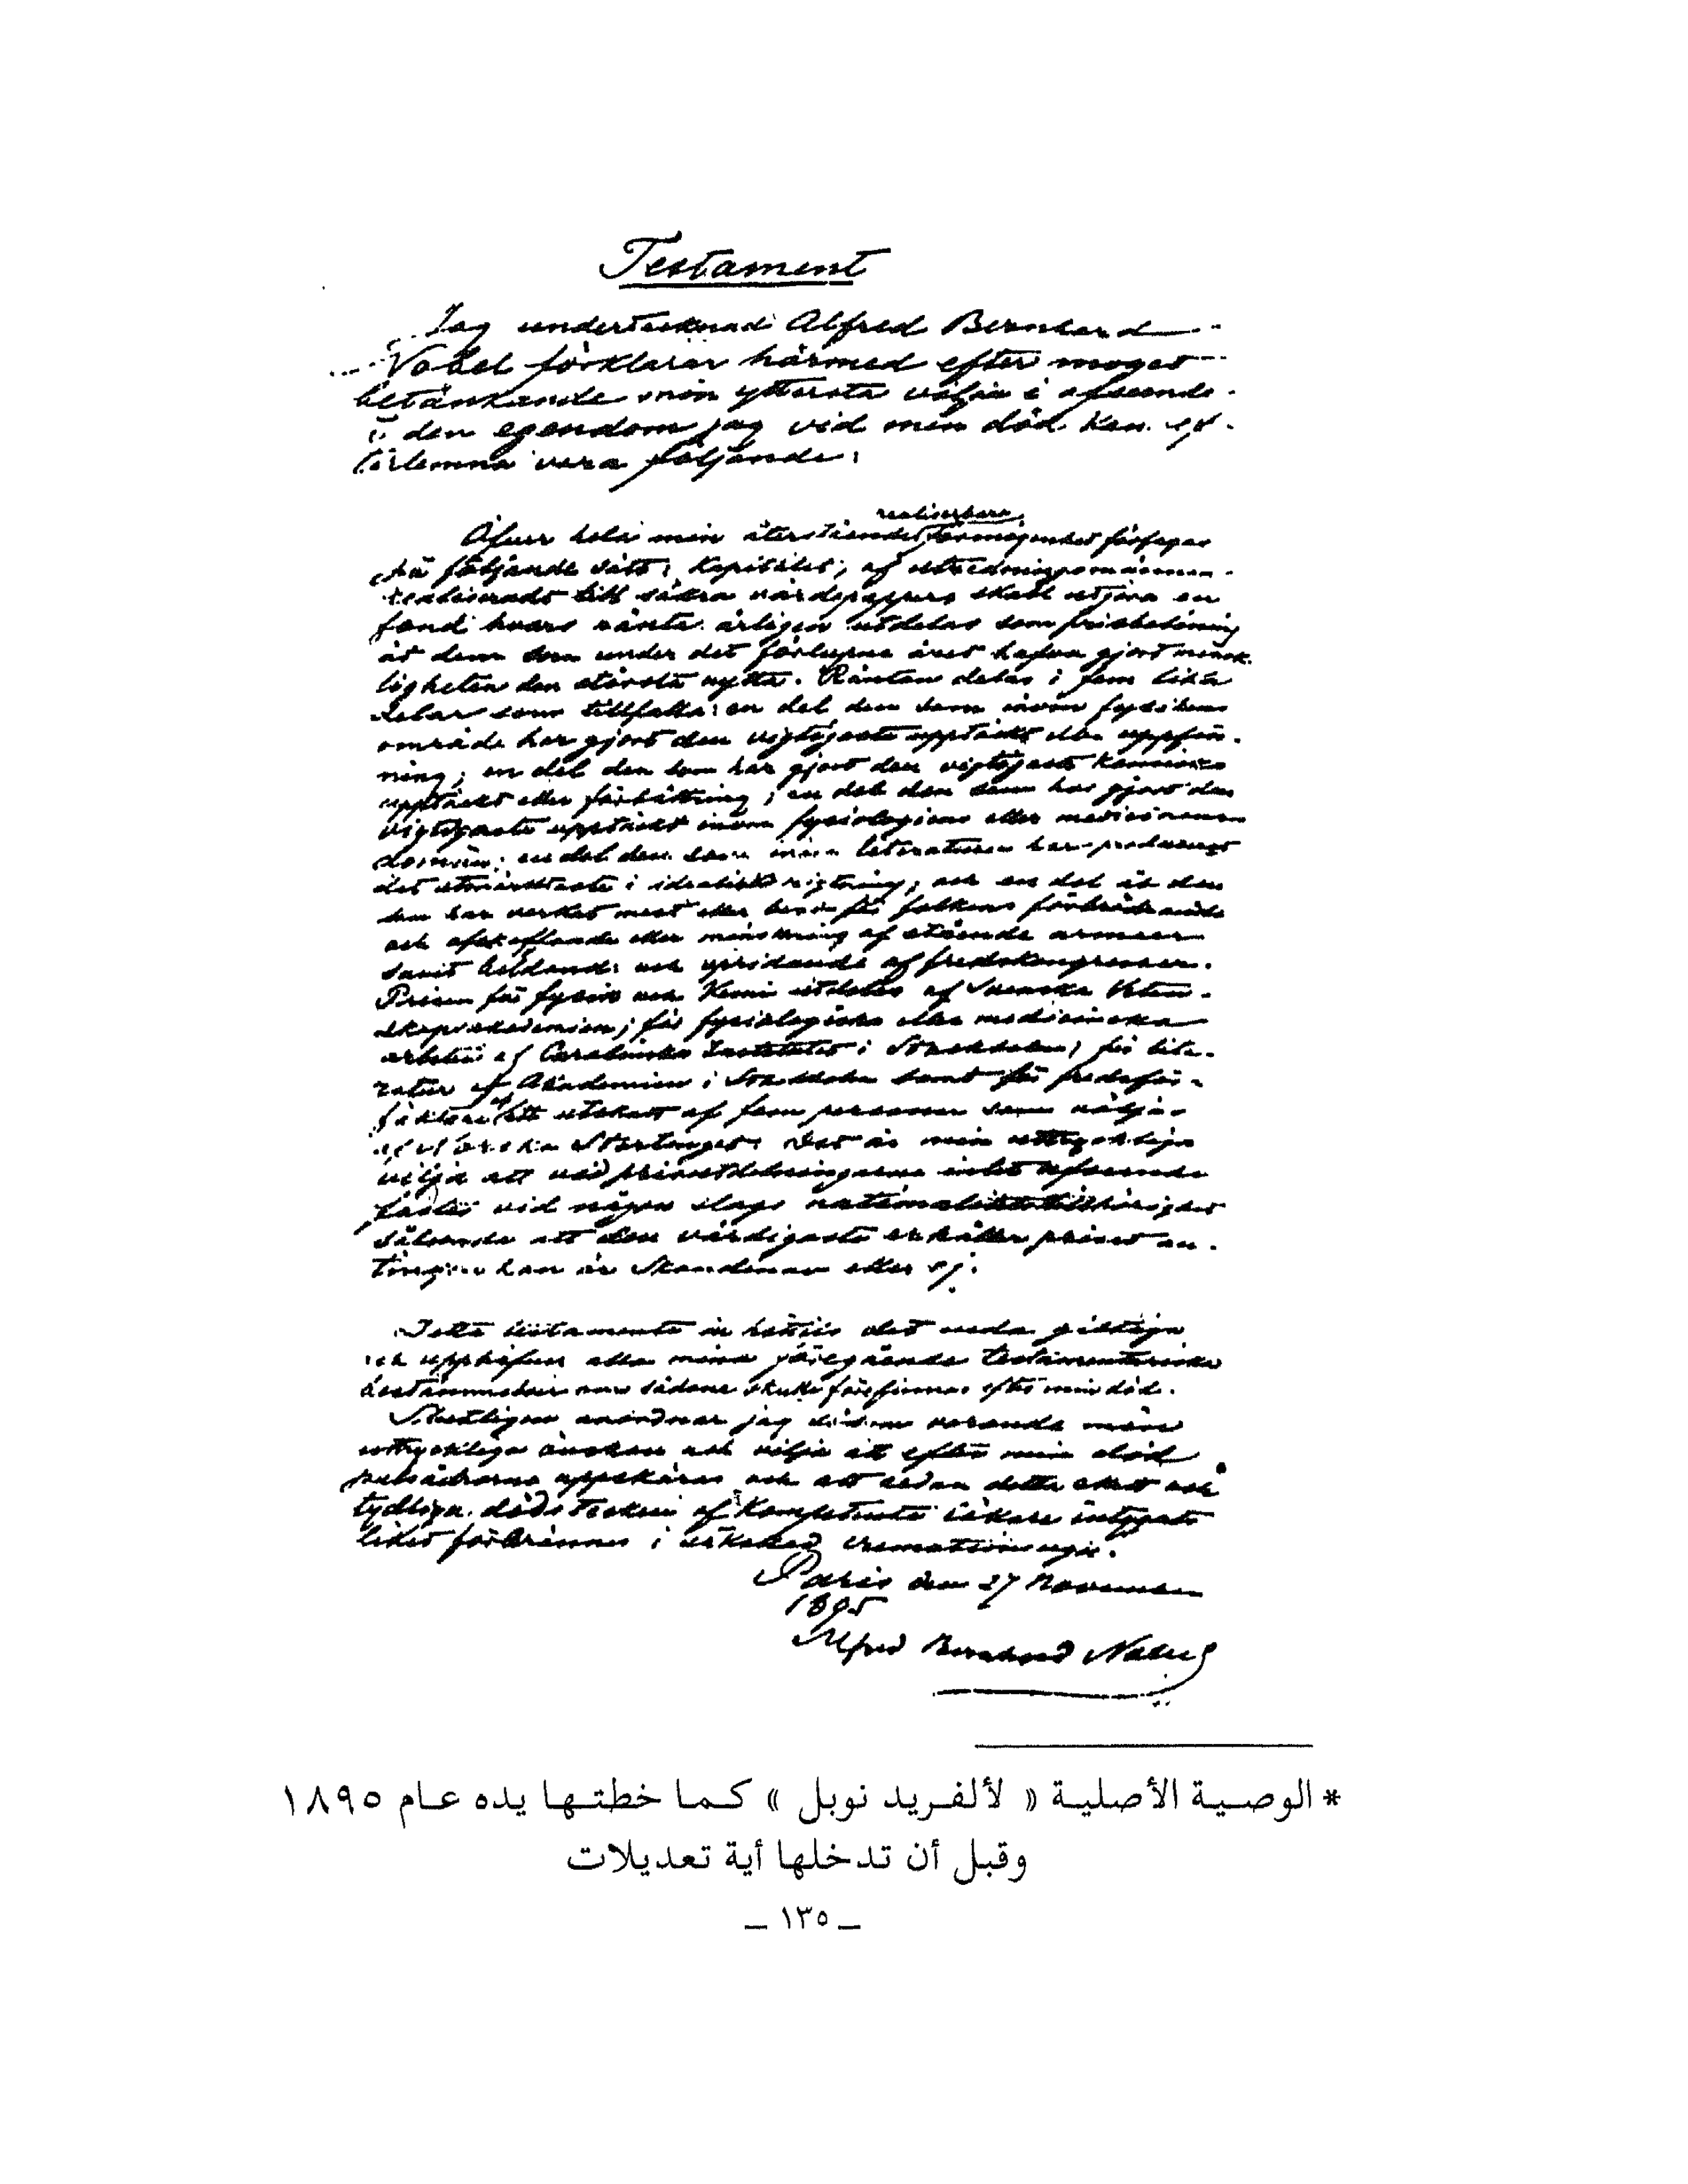 Testament
Jag undertecknad Alfred Bernhard
Nobel förklarar härmed efter moget
betänkande min yttersta vilja i afseende
å den egendom jag vid min död kan ef-
terlemna vara följande:
realiserbara
Öfver hela min återstående förmögenhet förfogas
på följande sätt: Kapitalet, af utredningsmännen
realiseradt till säkra värdepapper skall utgöra en
fond hvars ränta årligen utdelas som prisbelöning
åt dem som under det förlupne året hafva gjort mensk-
ligheten den största nytta. Räntan delas i fem lika
delar som tillfalla: en del den som inom fysikens
område har gjort den vigtigaste upptäckt eller uppfin-
ning; en del den som har gjort den vigtigaste kemiska
upptäckt eller förbättring; en del den som har gjort den
vigtigaste upptäckt inom fysiologiens eller medicinens
domän; en del den som inom literaturen har producerat
det utmärktaste i idealisk rigtning; och en del åt den
som har verkat mest eller best för folkens förbrödrande
och afskaffande eller minskning af stående armeer
samt bildande och spridande af fredskongresser.
Prisen för fysik och kemi utdelas af Svenska Veten-
skapsakademien; för fysiologiska eller medicinska
arbeten af Carolinska Institutet i Stockholm; för lite-
ratur af Akademien i Stockholm samt för fredsför-
fäktare af ett utskott af fem personer som väljas
af Norska Stortinget. Det är min uttryckliga
vilja att vid prisutdelningarne intet afseende
fästes vid någon slags nationalitetstillhörighet
sålunda att den värdigaste erhåller priset an-
tingen han är Skandinav eller ej.
Detta testamente är hittills det enda giltiga
och upphäfver alla mina föregående testamentariska
bestämmelser om sådane skulle förefinnas efter min död.
Slutligen anordnar jag såsom varande min
uttryckliga önskan och vilja att efter min död
pulsådrorna uppskäras och att sedan detta skett och
tydliga dödstecken af kompetenta läkare intygats
liket förbrännes i så kallad cremationsugn.
Paris den 27 November
1895
Alfred Bernhard Nobel
* الوصية الأصلية « لألفريد نوبل » كما خطتها يده عام ١٨٩٥
وقبل أن تدخلها أية تعديلات
– ١٣٥ –